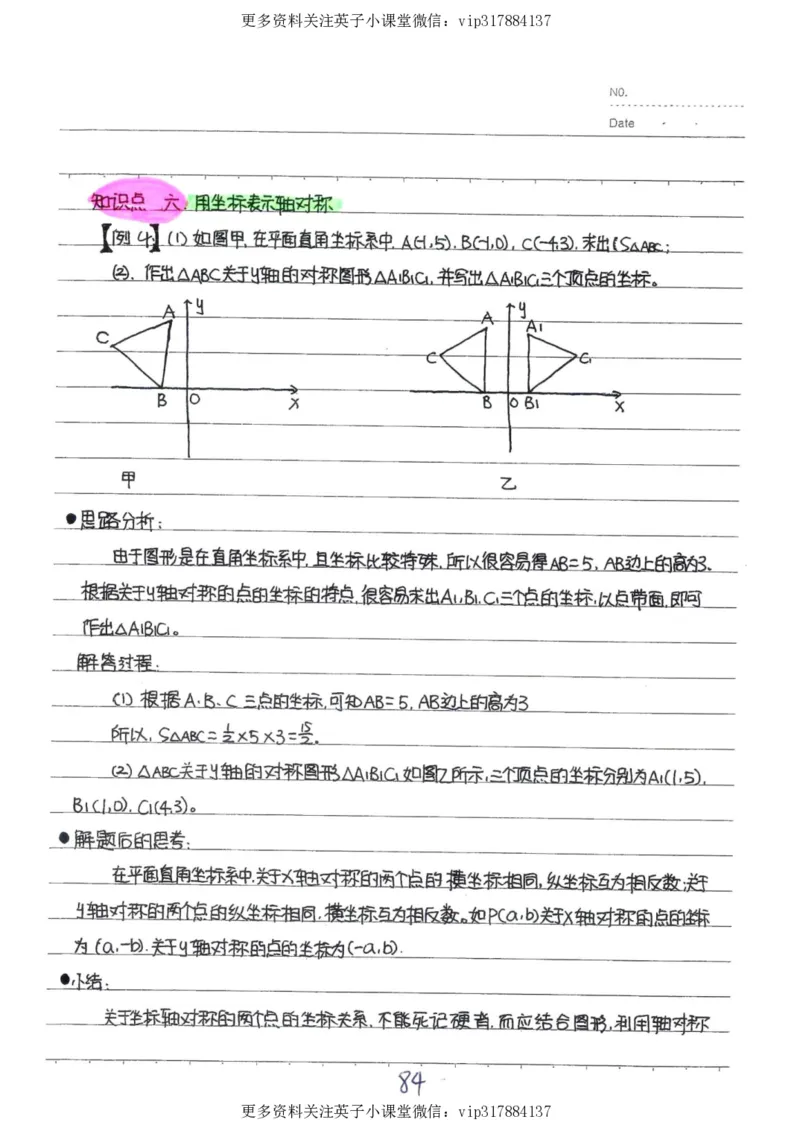 更多资料关注英子小课堂微信：vip317884137
NO.
Date
知识点 六. 用坐标表示轴对称
【例4】(1) 如图甲, 在平面直角坐标系中, A(-1,5), B(-1,0), C(-4,3). 求出S△ABC;
(2). 作出△ABC关于y轴的对称图形△A1B1C1, 并写出△A1B1C1三个顶点的坐标。
A y
C
B O x
甲
A y A1
C C1
B O B1 x
乙
●思路分析:
由于图形是在直角坐标系中, 且坐标比较特殊, 所以很容易得AB=5, AB边上的高为3.
根据关于y轴对称的点的坐标的特点, 很容易求出A1, B1, C1三个点的坐标, 以点带面, 即可
作出△A1B1C1。
解答过程:
(1) 根据A、B、C三点的坐标, 可知AB=5, AB边上的高为3
所以, S△ABC=1/2×5×3=15/2.
(2) △ABC关于y轴的对称图形△A1B1C1如图乙所示, 三个顶点的坐标分别为A1(1,5),
B1(1,0), C1(4,3)。
●解题后的思考:
在平面直角坐标系中, 关于x轴对称的两个点的横坐标相同, 纵坐标互为相反数; 关于
y轴对称的两个点的纵坐标相同, 横坐标互为相反数。如P(a,b)关于x轴对称的点的坐标
为(a,-b), 关于y轴对称的点的坐标为(-a,b).
●小结:
关于坐标轴对称的两个点的坐标关系, 不能死记硬背, 而应结合图形, 利用轴对称
84
更多资料关注英子小课堂微信：vip317884137